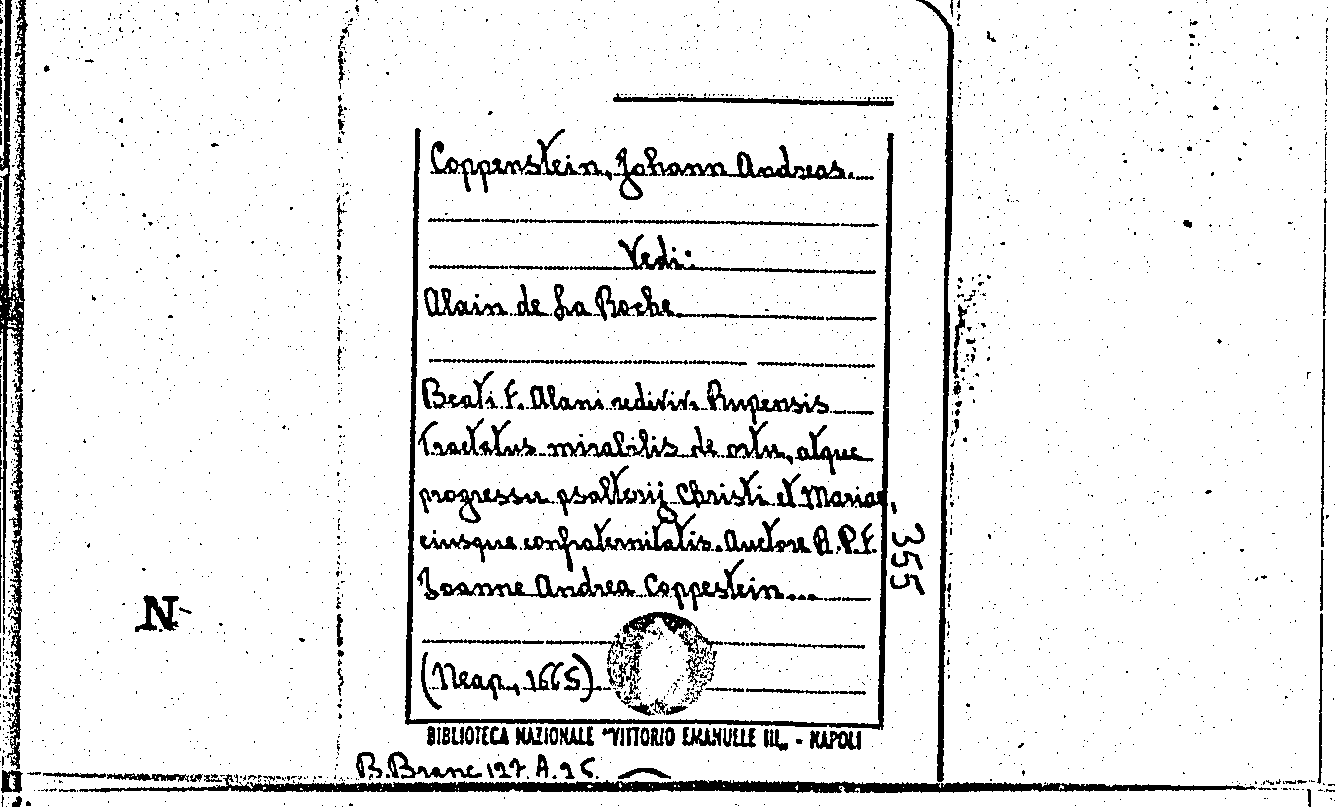 Coppenstein, Johann Andreas.
Vedi:
Alain de La Roche.
Beati F. Alani redivivi Rupensis
Tractatus mirabilis de ortu, atque
progressu psalterij Christi et Mariae,
eiusque confraternitatis. Auctore R.P.F.
Joanne Andrea Coppestein...
(Neap., 1665)
355
N
BIBLIOTECA NAZIONALE "VITTORIO EMANUELE III„ - NAPOLI
B. Branc 127. A. 25